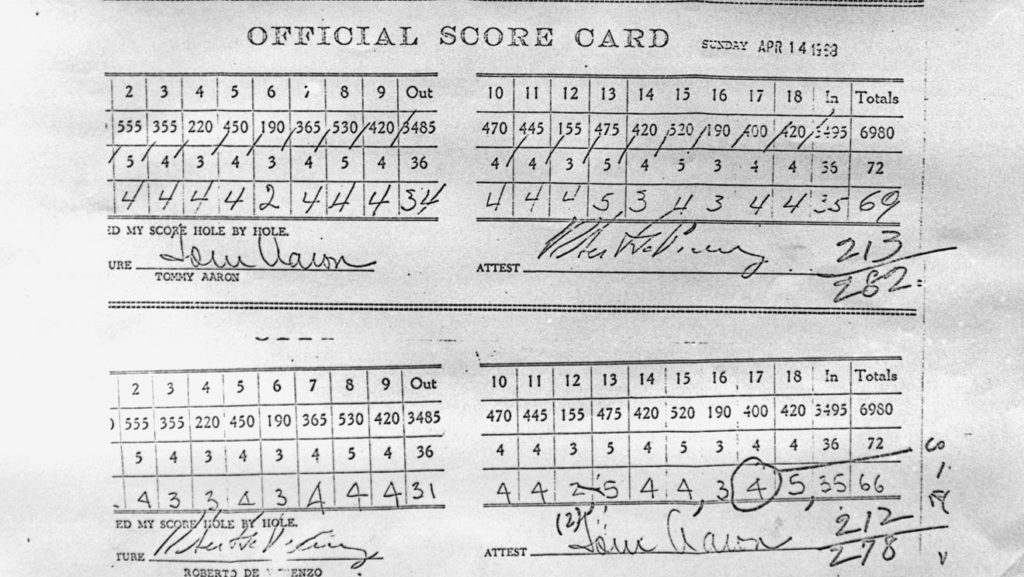 OFFICIAL SCORE CARD SUNDAY APR 14 1968
2 3 4 5 6 7 8 9 Out 10 11 12 13 14 15 16 17 18 In Totals
555 355 220 450 190 365 530 420 3485 470 445 155 475 420 520 190 400 420 3495 6980
5 4 3 4 3 4 5 4 36 4 4 3 5 4 5 3 4 4 36 72
4 4 4 4 2 4 4 4 34 4 4 4 5 3 4 3 4 4 35 69
ED MY SCORE HOLE BY HOLE.
213
URE Tom Aaron ATTEST
TOMMY AARON 282
2 3 4 5 6 7 8 9 Out 10 11 12 13 14 15 16 17 18 In Totals
555 355 220 450 190 365 530 420 3485 470 445 155 475 420 520 190 400 420 3495 6980
5 4 3 4 3 4 5 4 36 4 4 3 5 4 5 3 4 4 36 72
4 3 3 4 3 4 4 4 31 4 4 2 5 4 4 3 4 5 35 66
ED MY SCORE HOLE BY HOLE.
(2) 212
TURE ATTEST Tom Aaron 278
ROBERTO DE ENZO